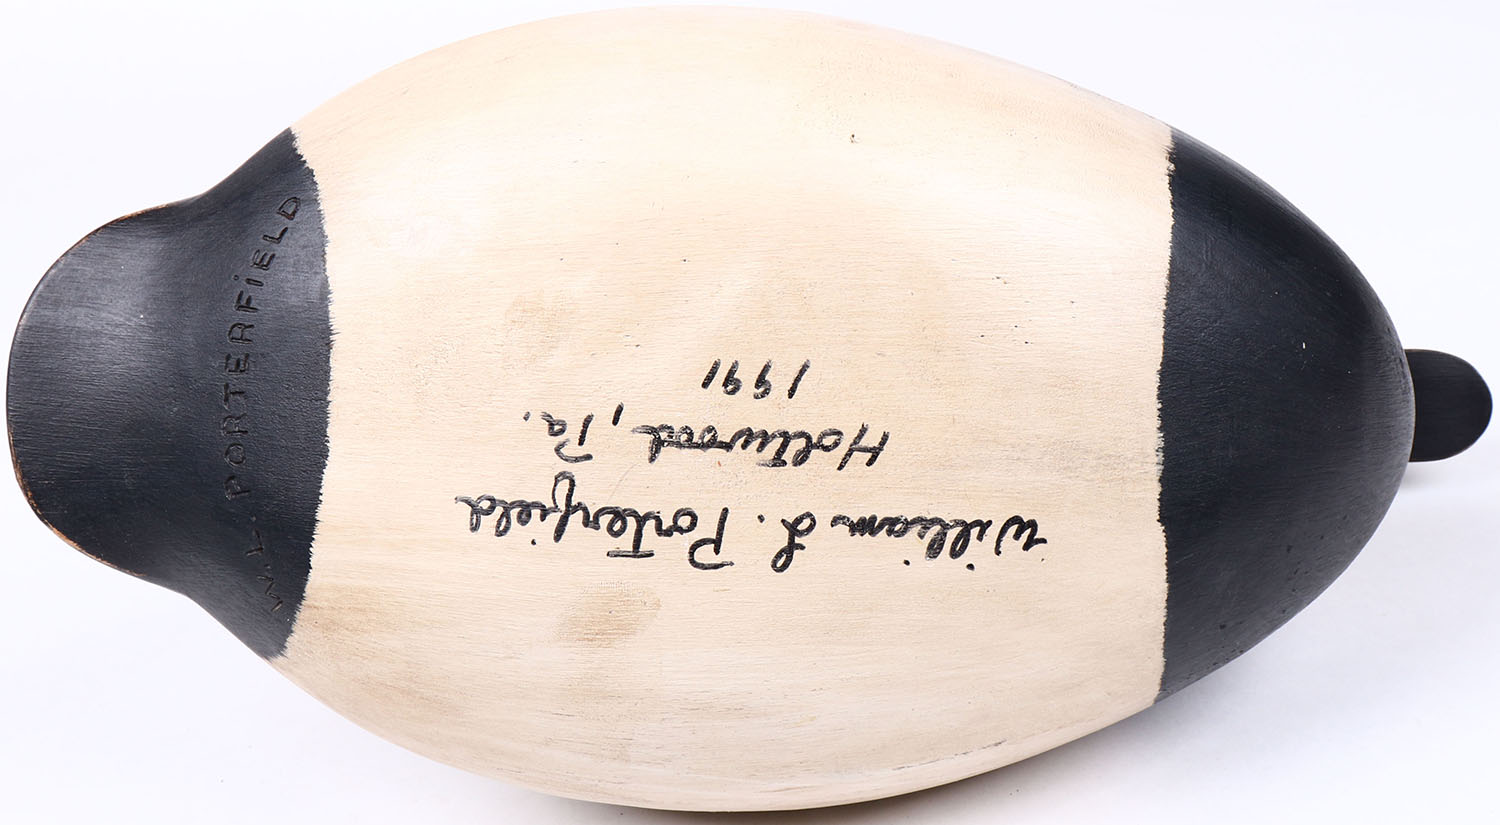 William L. Porterfield
Holtwood, Pa.
1991
W. L. PORTERFiELD